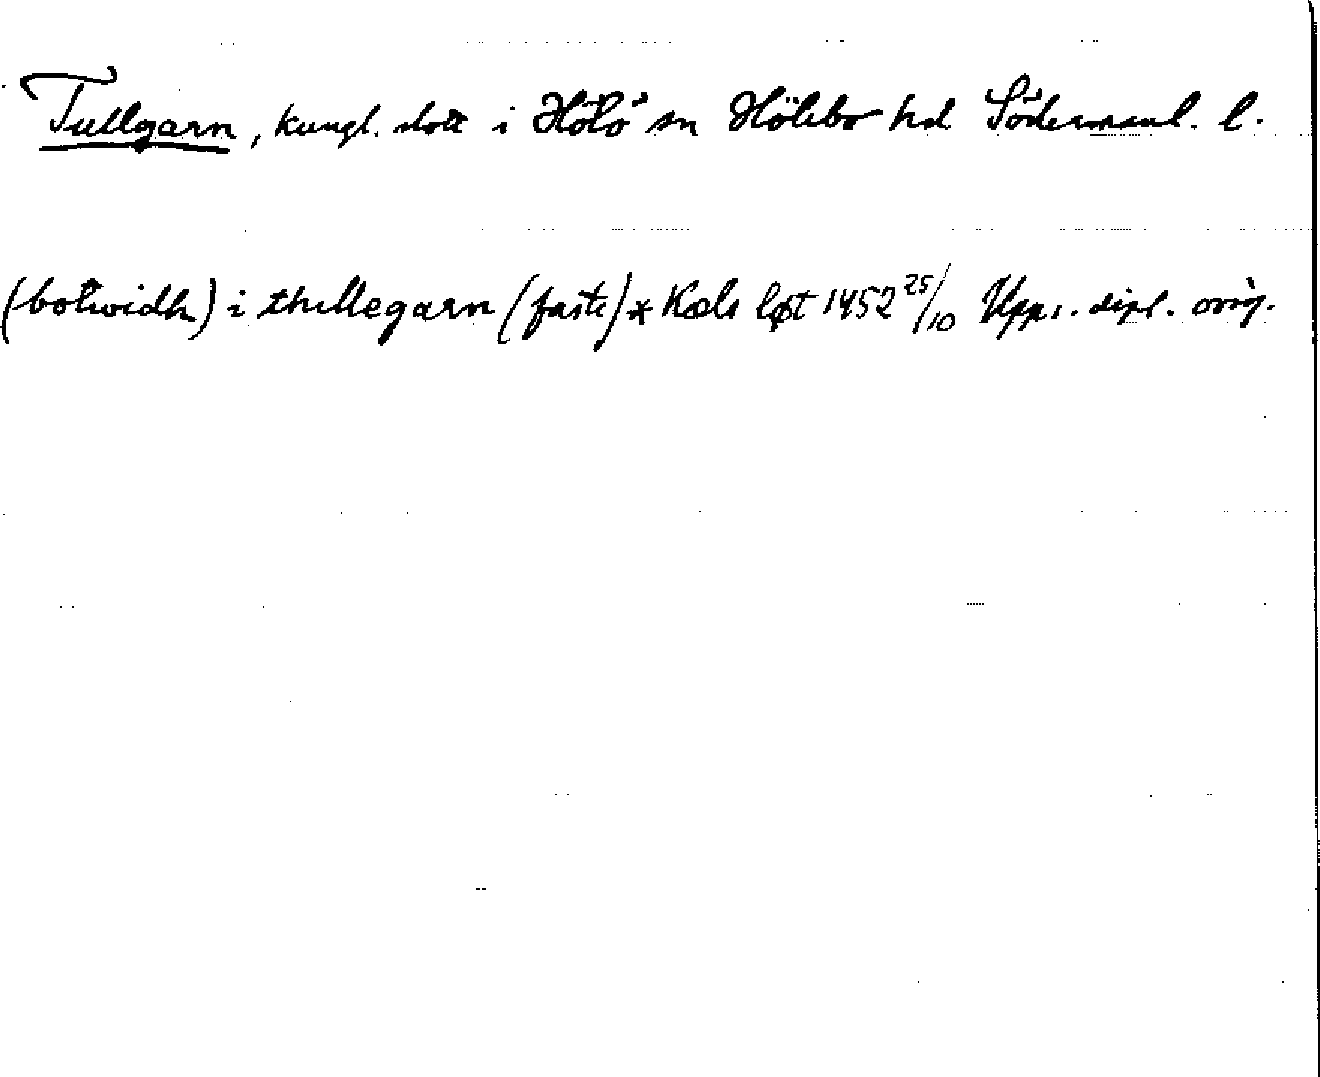 Tullgarn, kungl. slott i Hölö sn Hölebo hd Södermanl. l.
(botwidh) i thullegarn (faste) * Kæls løt 1452 25/10 Upps. dipl. orig.